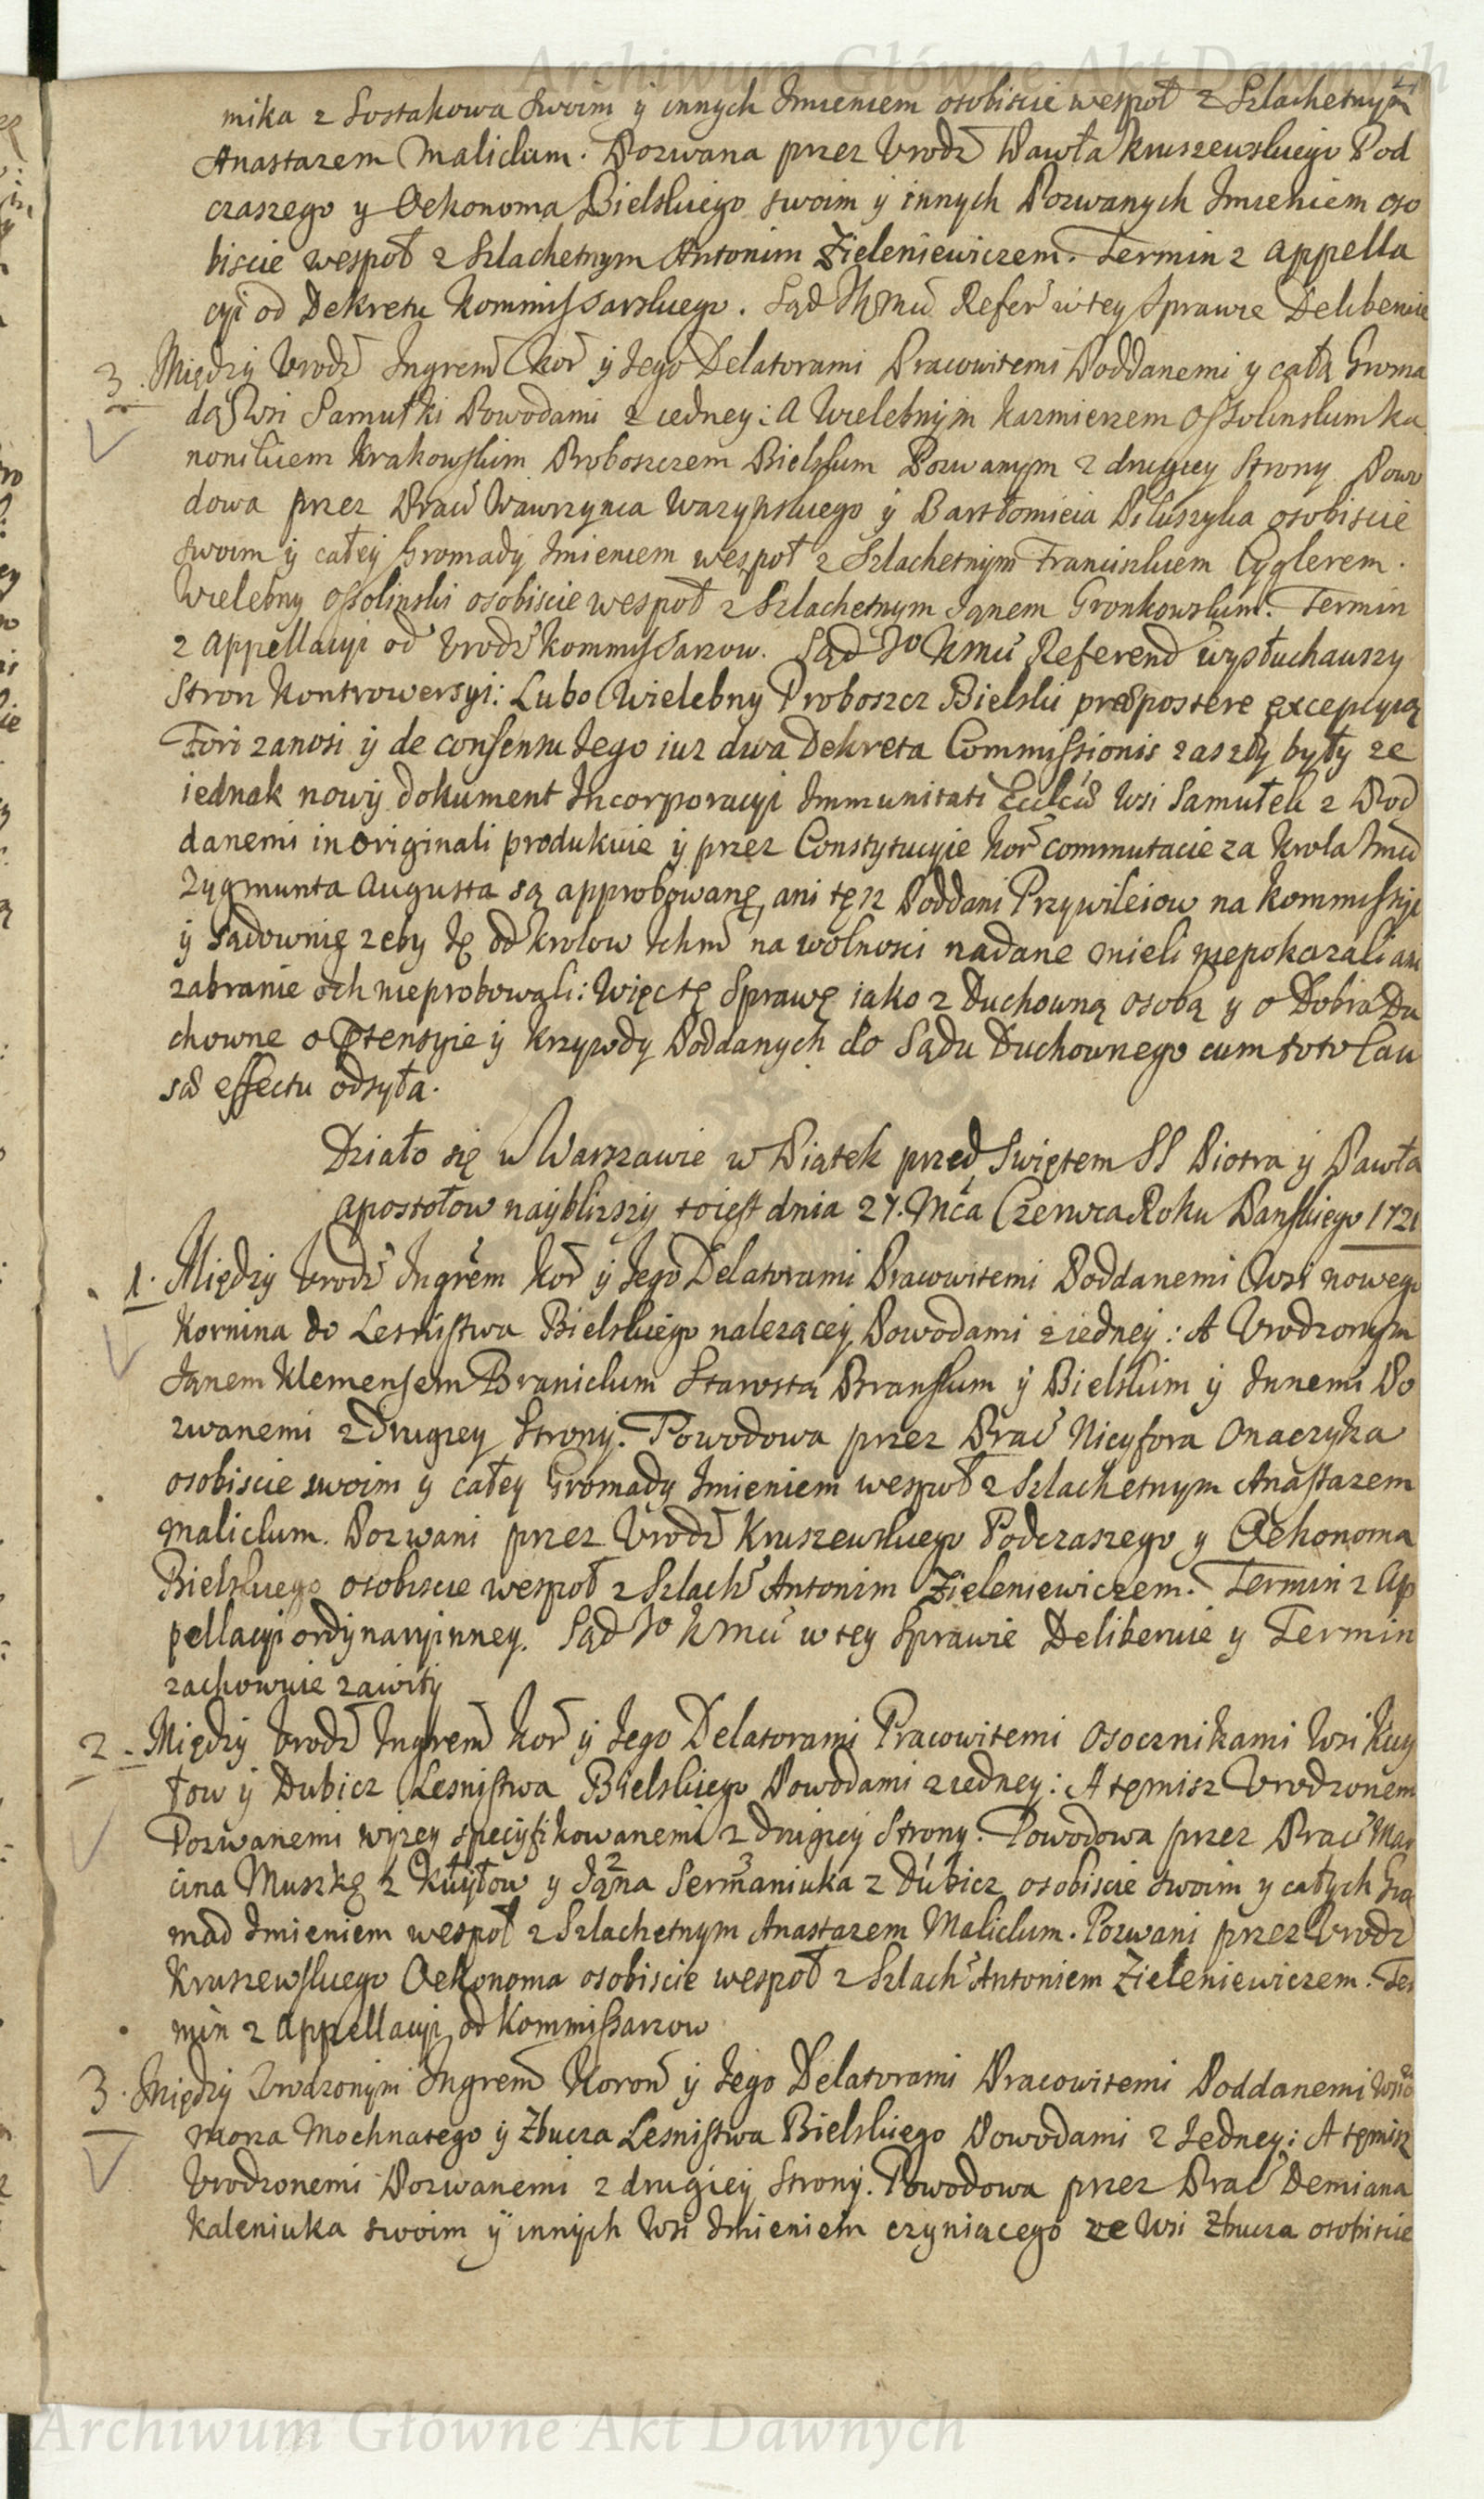 Archiwum Główne Akt Dawnych
mika z Sostakowa swoim y innych Imieniem osobiscie wespoł z Szlachetnym
Anastazem Malickim. Pozwana przez Vrodz Pawła Kruszewskiego Pod
czaszego y Oekonoma Bielskiego swoim y innych Pozwanych Imieniem oso
biscie wespoł z Szlachetnym Antonim Zieleniewiczem. Termin z appella
cyi od Dekretu Kommissarskiego. Sąd JKMci Refer w tey Sprawie Deliberuie
3. Między Vrodz Ingrem Kor y Iego Delatorami Pracowitemi Poddanemi y całą Groma
dą Wsi Samułki Powodami z iedney: A Wielebnym Kazimierzem Ossolinskim Ka
nonikiem Krakowskim Proboszczem Bielskim Pozwanym z drugiey Strony Powo
dowa przez Prac Wawrzynca Wazynskiego y Bartłomieia Piluszyka osobiscie
swoim y całey Gromady Imieniem wespoł z Szlachetnym Franciszkiem Cyglerem.
Wielebny Ossolinski osobiscie wespoł z Szlachetnym Janem Gronkowskim. Termin
z Appellacyi od Vrodz Kommissarzow. Sąd Jo Kmci Referend wysłuchawszy
Stron Kontrowersyi: Lubo Wielebny Proboszcz Bielski præpostere excepcyią
Fori zanosi y de consensu Iego iuz dwa Dekreta Commissionis zaszły były ze
iednak nowy dokument Incorporacyi Immunitati Eccleiæ Wsi Samułek z Pod
danemi in originali produkuie y przez Constytucyie Kor commutacie za Krola Jmci
Zygmunta Augusta są approbowanę, ani tęsz Poddani Przywileiow na Kommissyi
y sądownię zeby Ię od Krolow Ichm na wolnosci nadane mieli niepokazali ani
zabranie och nieprobowali: Więc tę Sprawę iako z Duchowną osobą y o Dobra Du
chowne o Ptensyie y krzywdy Poddanych do Sądu Duchownego cum toto Cau
sæ effectu odsyła.
Działo się w Warszawie w Piątek przed Swiętem SS Piotra y Pawła
Apostołow nayblizszy toiest dnia 27. Mca Czerwca Roku Panskiego 1721
1. Między Vrodz Ingrem Kor y Iego Delatorami Pracowitemi Poddanemi Wsi nowego
Kornina do Lesnistwa Bielskiego nalezącey Powodami z iedney: A Vrodzonym
Janem Klemensem Branickim Starostą Branskim y Bielskim y Innemi Po
zwanemi z drugiey Strony. Powodowa przez Prac Nicyfora Onaczyka
osobiscie swoim y całey Gromady Imieniem wespoł z Szlachetnym Anastazem
Malickim. Pozwani przez Vrodz Kruszewskiego Podczaszego y Oekonoma
Bielskiego osobiscie wespoł z Szlach Antonim Zieleniewiczem. Termin z Ap
pellacyi ordynaryinney. Sąd Jo Kmci w tey Sprawie Deliberuie y Termin
zachowuie zawity
2. Między Vrodz Ingrem Kor y Iego Delatorami Pracowitemi Osocznikami Wsi Kuy
łow y Dubicz Lesnistwa Bielskiego Powodami z iedney: A temisz Vrodzonem
Pozwanemi wyzey specyfikowanemi z drugiey Strony. Powodowa przez Prac Mar
cina Muszkę z Kuyłow y Jana Sermaniuka z Dubicz osobiscie swoim y całych Gro
mad Imieniem wespoł z Szlachetnym Anastazem Malickim. Pozwani przez Vrodz
Kruszewskiego Oekonoma osobiscie wespoł z Szlach Antoniem Zieleniewiczem. Ter
min z Appellacyi od Kommissarzow
3. Między Vrodzonym Ingrem Koron y Iego Delatorami Pracowitemi Poddanemi Wsio
mona Mochnatego y Zbucza Lesnistwa Bielskiego Powodami z Iedney: A temisz
Vrodzonemi Pozwanemi z drugiey Strony. Powodowa przez Prac Demiana
Kaleniuka swoim y innych Wsi Imieniem czyniącego ze Wsi Zbucza osobiscie
Archiwum Główne Akt Dawnych